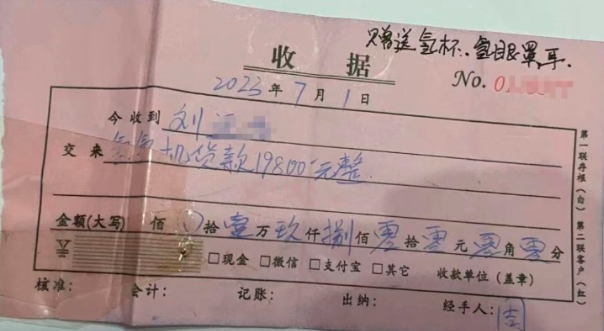 赠送氢杯、氢眼罩、耳
收据
No. 0
2023年7月1日
今收到 刘
交来 氢氧机货款19800元整
金额(大写) 佰 拾壹万玖仟捌佰零拾零元零角零分
¥ □现金 □微信 □支付宝 □其它 收款单位(盖章)
核准: 会计: 记账: 出纳: 经手人:
第一联存根(白) 第二联客户(红)